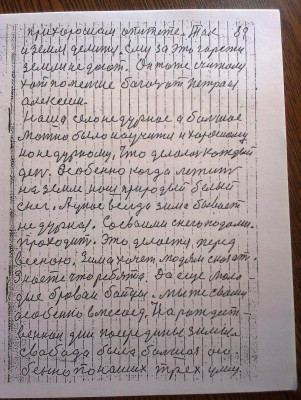 прихорошом опитоте. Так 89
и земли делити. Ему за это гарети
земли не дают. Он тоже считали
хот помение богачот петрам
алексеем.
Наша село недурное а большое
Можно было научити и хорошому
но не дурному, Что делалос каждый
ден. Особенно когда лежит
на земле наш природый белый
снег. А у нас всегда зима бывает
не дурная. Со своими снегопадами.
проходит. Это делается, перед
весною. Зима хочет людям сказат.
Знаете что ребята. Да еще мало
дне бровам байды. Мы же сваты
особенно в месоед. И на рождест-
венкой дни посередины зимы.
свабода была большая осо-
бенно по наших трех улиц